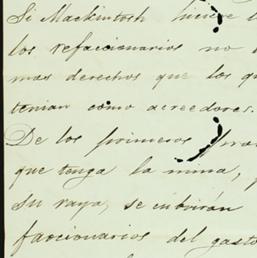 Si Mackintosh hiciere
los refaccionarios no
mas derechos que los qu
tenian como acreedores.
De los primeros
que tenga la mina,
su raya, se cubrirán
faccionarios del gasto